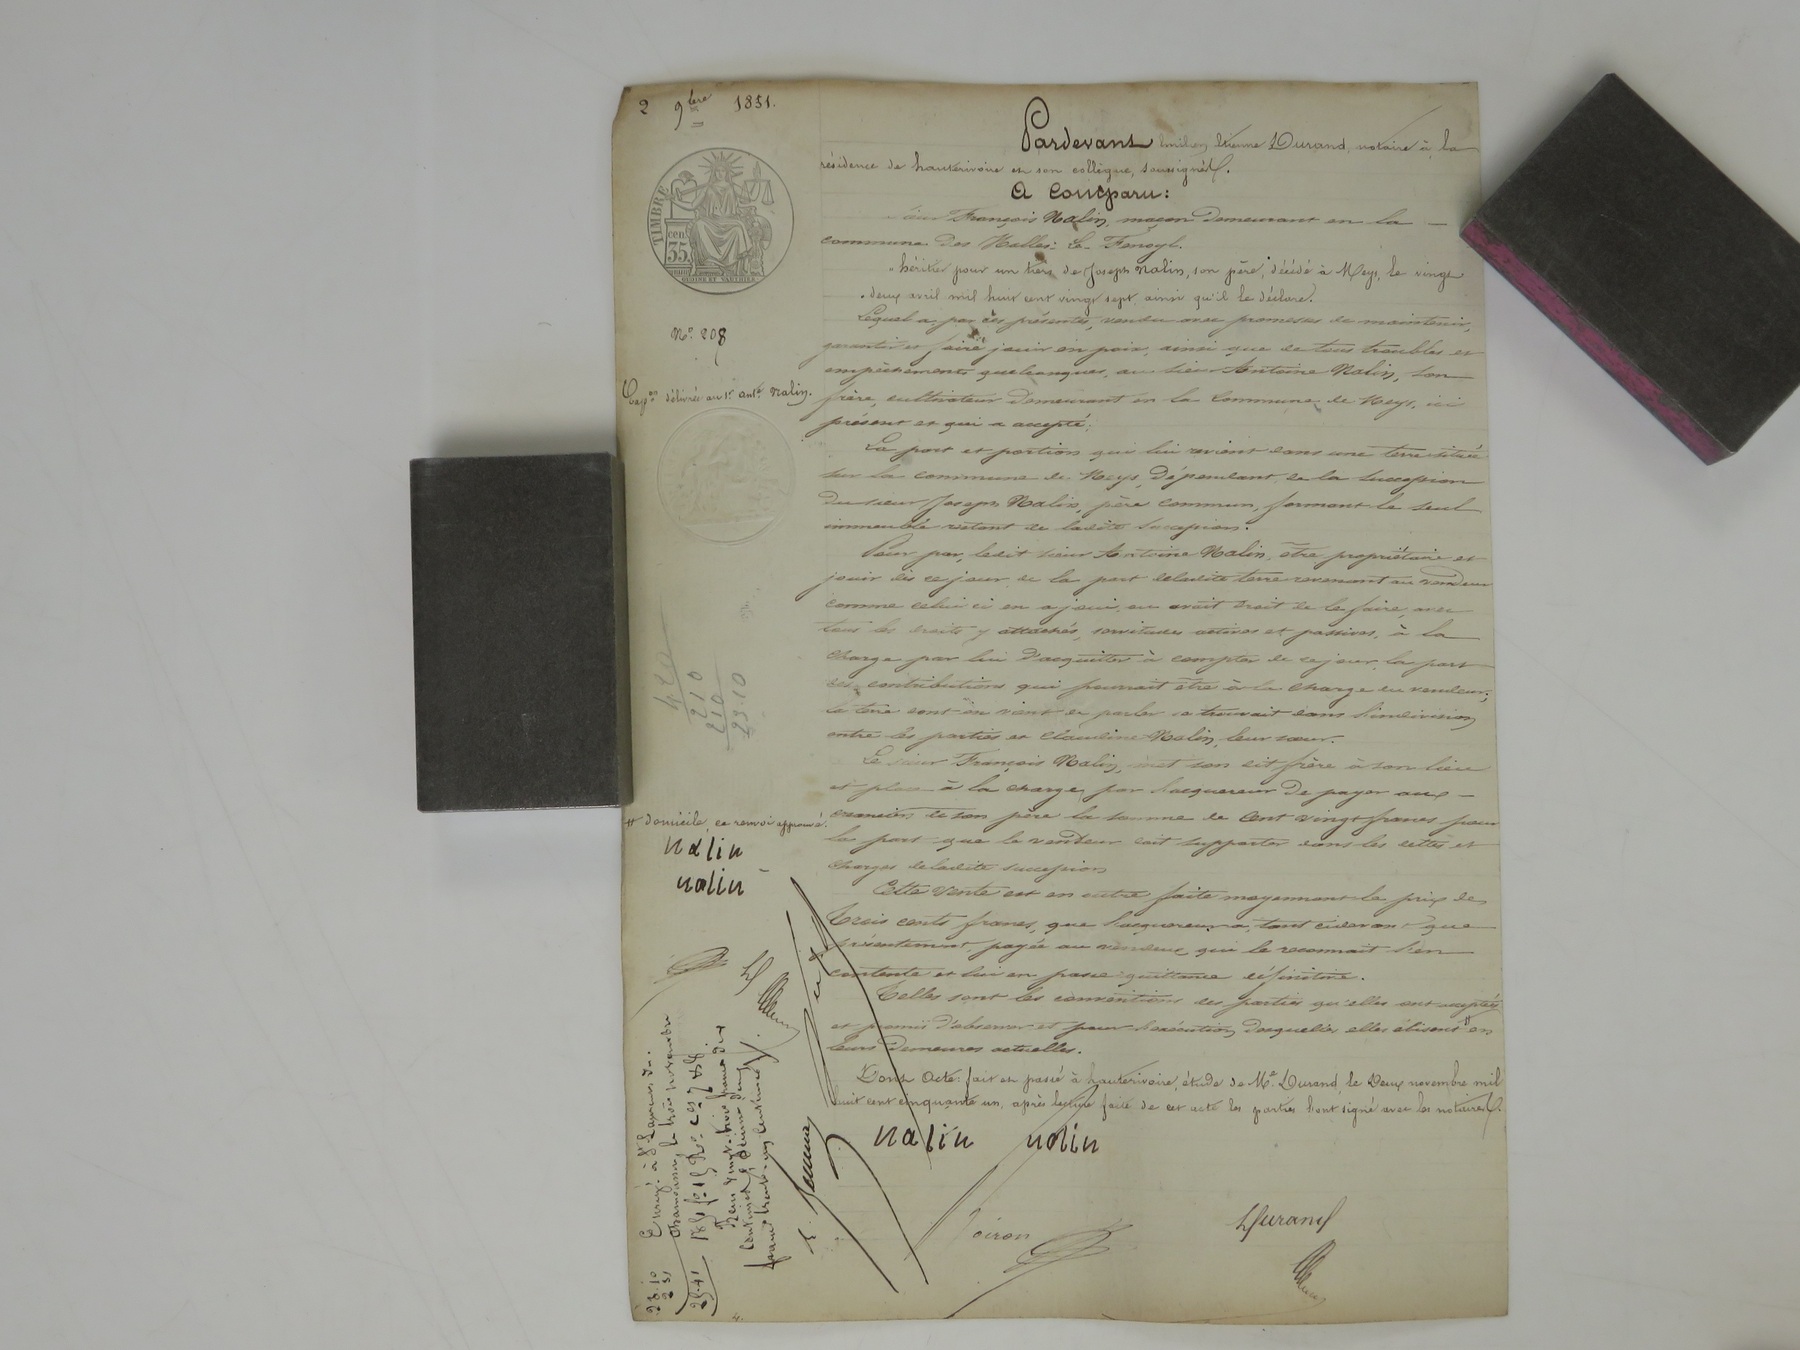 2 9bre 1851.
TIMBRE
cen.
35
No. 208
Exp.on délivrée au Sr. Ant.e Nalin.
Pardevant Emilien Etienne Durand, notaire à la
résidence de hauterivoire et son collègue, soussignés.
A Comparu:
Sieur François Nalin, maçon demeurant en la
commune des Halles-le-Fenoyl.
héritier pour un tiers de Joseph Nalin, son père, décédé à Meys, le vingt
deux avril mil huit cent vingt sept, ainsi qu'il le déclare.
Lequel a, par ces présentes, vendu avec promesse de maintenir,
garantir et faire jouir en paix, ainsi que de tous troubles et
empêchements quelconques, au sieur Antoine Nalin, son
frère, cultivateur demeurant en la Commune de Meys, ici
présent et qui a accepté;
La part et portion qui lui revient dans une terre située
sur la commune de Meys, dépendant de la succession
du sieur Joseph Nalin, père commun, formant le seul
immeuble restant de ladite succession.
Pour par ledit sieur Antoine Nalin, être propriétaire et
jouir dès ce jour de la part de ladite terre revenant au vendeur
comme celui ci en a joui, ou avait droit de le faire, avec
tous les droits y attachés, servitudes actives et passives, à la
charge par lui d'acquitter à compter de ce jour, la part
des contributions qui pourrait être à la charge du vendeur;
la terre dont on vient de parler se trouvait dans l'indivision
entre les parties et Claudine Nalin, leur sœur.
Le sieur François Nalin, met son dit frère à son lieu
et place à la charge, par l'acquéreur de payer aux
créanciers de son père la somme de Cent vingt francs pour
la part que le vendeur doit supporter dans les dettes et
charges de ladite succession
Cette vente est en outre faite moyennant le prix de
Trois cents francs, que l'acquéreur a, tant cidevant que
présentement, payée au vendeur qui le reconnait s'en
contente et lui en passe quittance définitive.
Telles sont les conventions des parties qu'elles ont acceptées
et promis d'observer et pour l'exécution desquelles elles élisent # en
leurs demeures actuelles.
Dont Acte: fait et passé à hauterivoire, étude de Me. Durand, le Deux novembre mil
huit cent cinquante un, après lecture faite de cet acte les parties l'ont signé avec les notaires.
nalin nalin
Voiron
Durand
420
210
210
23.10
# domicile, ce renvoi approuvé.
nalin
nalin
Enregé. à St. Laurent de
Chamousset, le trois novembre
1851 fo.
Reçu Vingt trois francs dix
centimes, décime deux
francs trente un centimes.
23.10
2 31
25.41